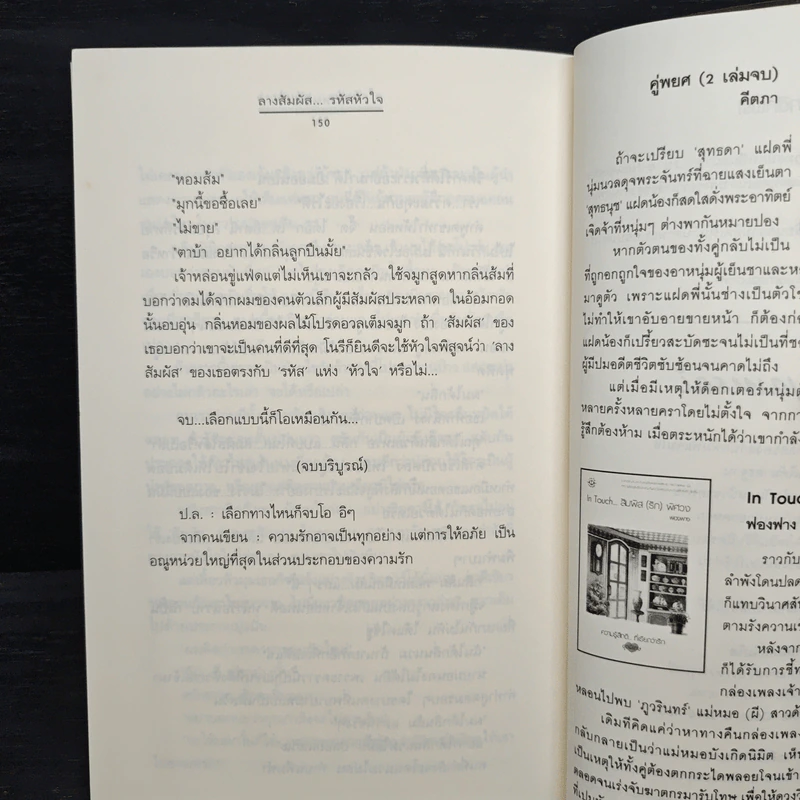 ลางสัมผัส... รหัสหัวใจ
150
"หอมส้ม"
"มุกนี้ขอซื้อเลย"
"ไม่ขาย"
"ตาบ้า อยากได้กลิ่นลูกปืนมั้ย"
เจ้าหล่อนขู่แฟ่ดแต่ไม่เห็นเขาจะกลัว ใช้จมูกสูดหากลิ่นส้มที่
บอกว่าดมได้จากผมของคนตัวเล็กผู้มีสัมผัสประหลาด ในอ้อมกอด
นั้นอบอุ่น กลิ่นหอมของผลไม้โปรดอวลเต็มจมูก ถ้า 'สัมผัส' ของ
เธอบอกว่าเขาจะเป็นคนที่ดีที่สุด โนรีก็ยินดีจะใช้หัวใจพิสูจน์ว่า 'ลาง
สัมผัส' ของเธอตรงกับ 'รหัส' แห่ง 'หัวใจ' หรือไม่...
จบ...เลือกแบบนี้ก็โอเหมือนกัน...
(จบบริบูรณ์)
ป.ล. : เลือกทางไหนก็จบโอ อิๆ
จากคนเขียน : ความรักอาจเป็นทุกอย่าง แต่การให้อภัย เป็น
อณูหน่วยใหญ่ที่สุดในส่วนประกอบของความรัก
คู่พยศ (2 เล่มจบ)
คีตภา
ถ้าจะเปรียบ 'สุทธดา' แฝดพี่
นุ่มนวลดุจพระจันทร์ที่ฉายแสงเย็นตา
'สุทธนุช' แฝดน้องก็สดใสดั่งพระอาทิตย์
เจิดจ้าที่หนุ่มๆ ต่างพากันหมายปอง
หากตัวตนของทั้งคู่กลับไม่เป็น
ที่ถูกอกถูกใจของอาหนุ่มผู้เย็นชาและห
มาดูตัว เพราะแฝดพี่นั้นช่างเป็นตัวโร
ไม่ทำให้เขาอับอายขายหน้า ก็ต้องก่อ
แฝดน้องก็เปรี้ยวสะบัดซะจนไม่เป็นที่ช
ผู้มีปมอดีตชีวิตซับซ้อนจนคาดไม่ถึง
แต่เมื่อมีเหตุให้ด็อกเตอร์หนุ่มต
หลายครั้งหลายคราโดยไม่ตั้งใจ จากกา
รู้สึกต้องห้าม เมื่อตระหนักได้ว่าเขากำลัง
In Touch... สัมผัส (รัก) พิศวง
ฟองฟาง
ความรู้สึกดี... ที่เรียกว่ารัก
In Touc
ฟองฟาง
ราวกับ
ลำพังโดนปลด
ก็แทบวินาศสัน
ตามรังควานเข
หลังจาก
ก็ได้รับการชี้ท
กล่องเพลงเจ้า
หลอนไปพบ 'ภูวรินทร์' แม่หมอ (ผี) สาวต้
เดิมที่คิดแค่ว่าหาทางคืนกล่องเพลง
กลับกลายเป็นว่าแม่หมอบังเกิดนิมิต เห็
เป็นเหตุให้ทั้งคู่ต้องตกกระไดพลอยโจนเข้า
ตลอดจนเร่งจับฆาตกรมารับโทษ เพื่อให้ดวงวิ